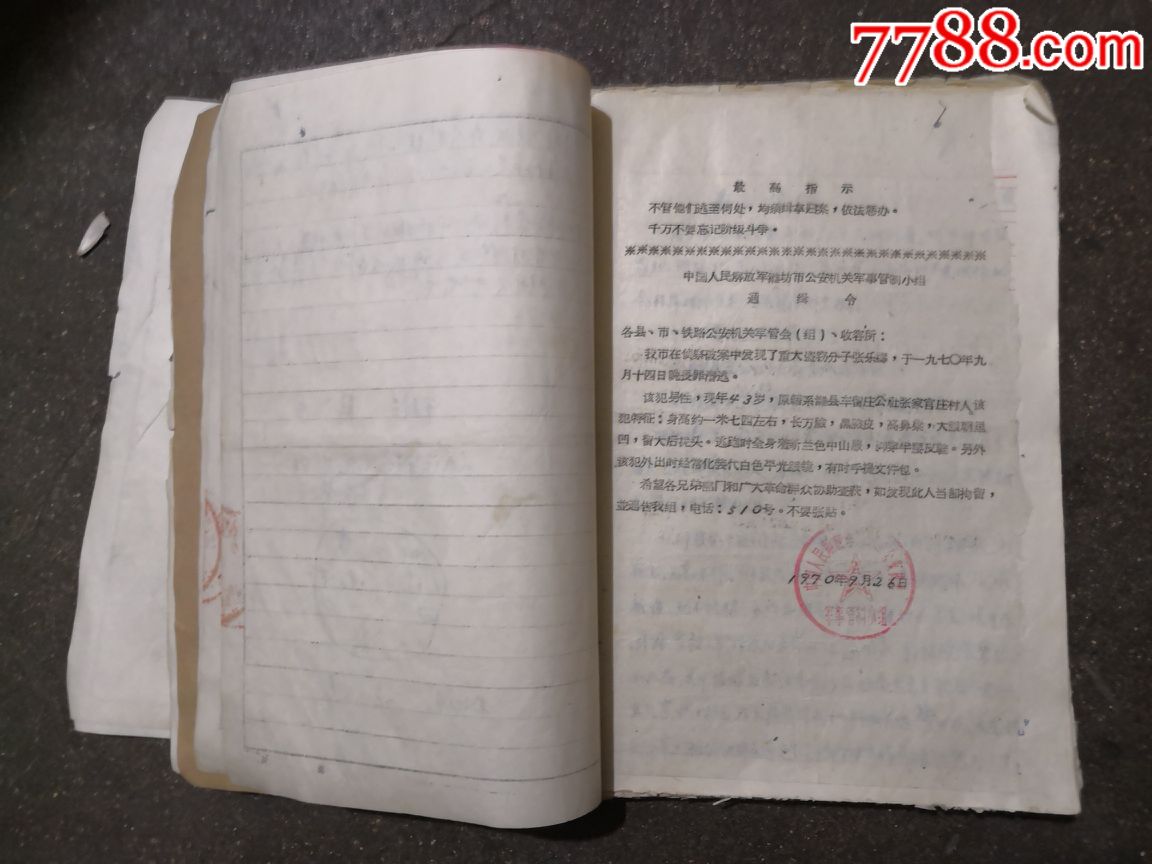 7788.com
最高指示
不管他们逃至何处,均须缉拿归案,依法惩办。
千万不要忘记阶级斗争。
※※※※※※※※※※※※※※※※※※※※※※※※※※※※
中国人民解放军潍坊市公安机关军事管制小组
通缉令
各县、市、铁路公安机关军管会(组)、收容所:
我市在侦察破案中发现了重大盗窃分子张乐,于一九七〇年九
月十四日晚畏罪潜逃。
该犯男性,现年43岁,原籍系潍县车留庄公社张家官庄村人该
犯特征:身高约一米七四左右,长方脸,黑脸皮,高鼻梁,大眼睛
凹,留大后抿头。逃跑时全身着新兰色中山服,半腰皮鞋。另外
该犯外出时经常化装代白色平光眼镜,有时手提文件包。
希望各兄弟部门和广大革命群众协助查获,如发现此人当即拘留,
并通告我组,电话:510号。不要张贴。
1970年9月26日
中国人民解放军
军事管制小组